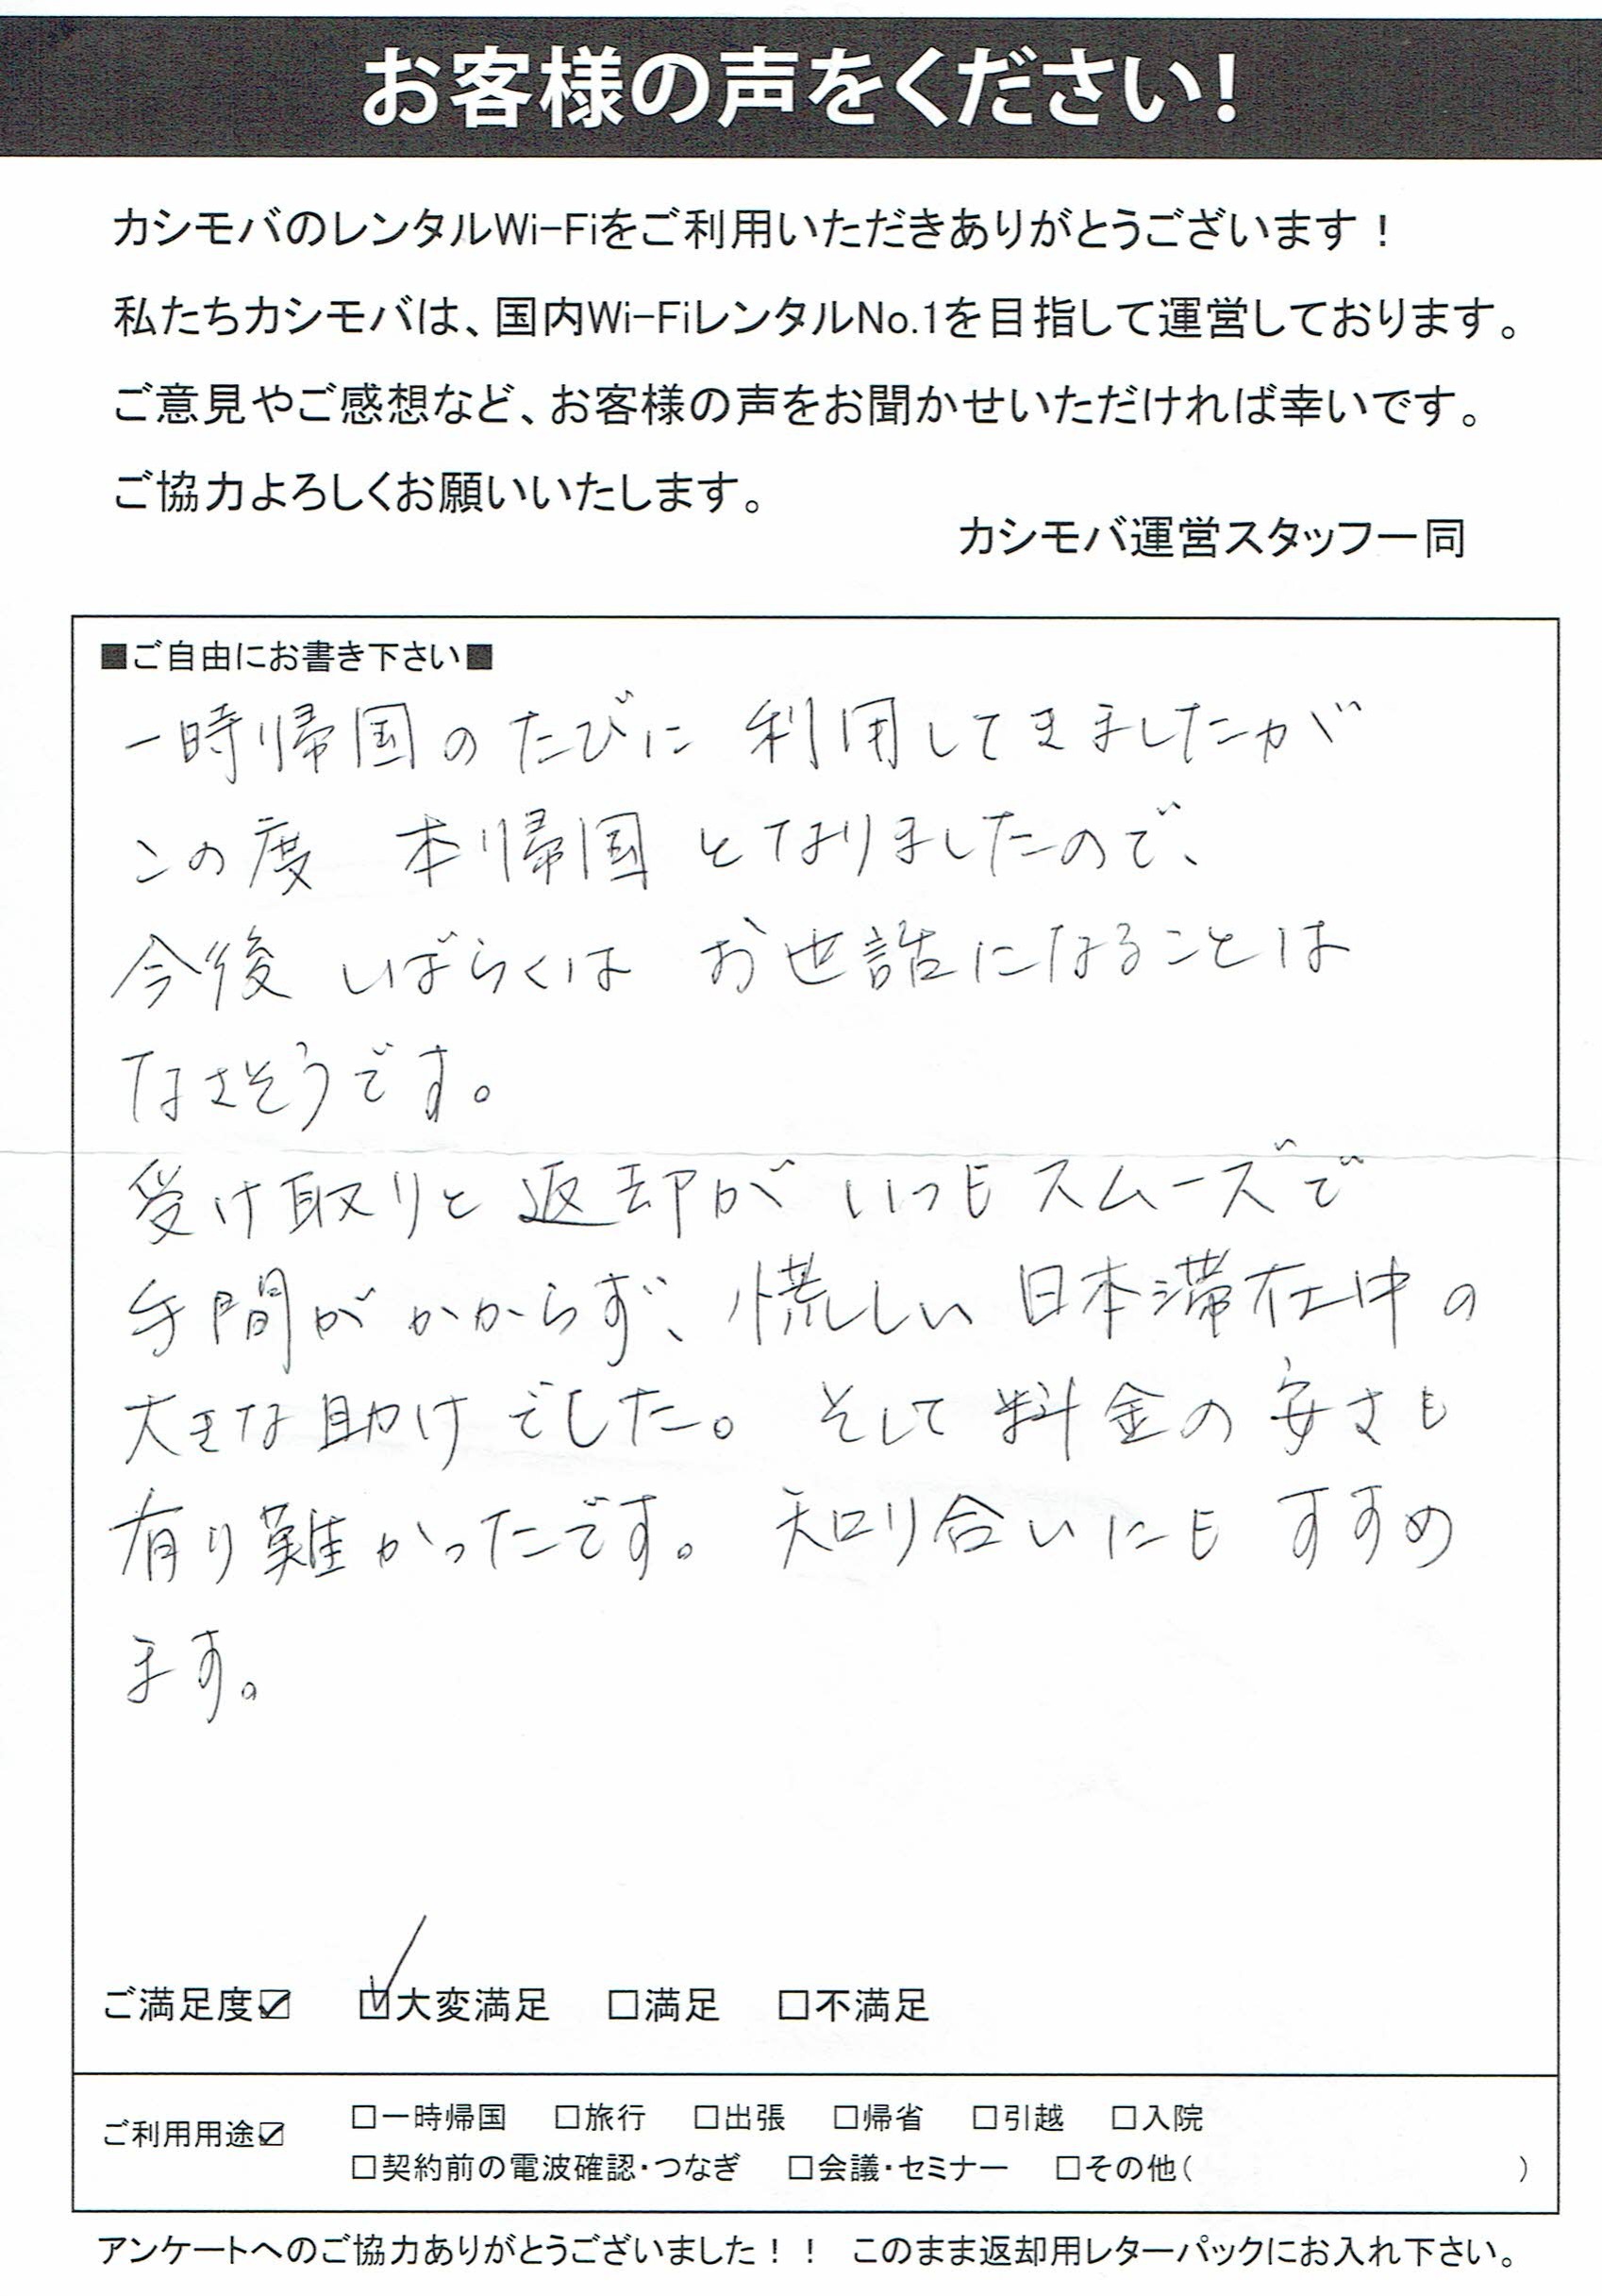 お客様の声をください!
カシモバのレンタルWi-Fiをご利用いただきありがとうございます！
私たちカシモバは、国内Wi-FiレンタルNo.1を目指して運営しております。
ご意見やご感想など、お客様の声をお聞かせいただければ幸いです。
ご協力よろしくお願いいたします。
カシモバ運営スタッフ一同
■ご自由にお書き下さい■
一時帰国のたびに 利用してきましたが
この度 本帰国 となりましたので、
今後 しばらくは お世話になることは
なさそうです。
受け取りと返却が いつもスムーズで
手間がかからず、慌しい 日本滞在中の
大きな助けでした。 そして料金の安さも
有り難かったです。 知り合いにも すすめ
ます。
ご満足度☑ ☑大変満足 □満足 □不満足
ご利用用途☑ □一時帰国 □旅行 □出張 □帰省 □引越 □入院
□契約前の電波確認・つなぎ □会議・セミナー □その他( )
アンケートへのご協力ありがとうございました！！ このまま返却用レターパックにお入れ下さい。